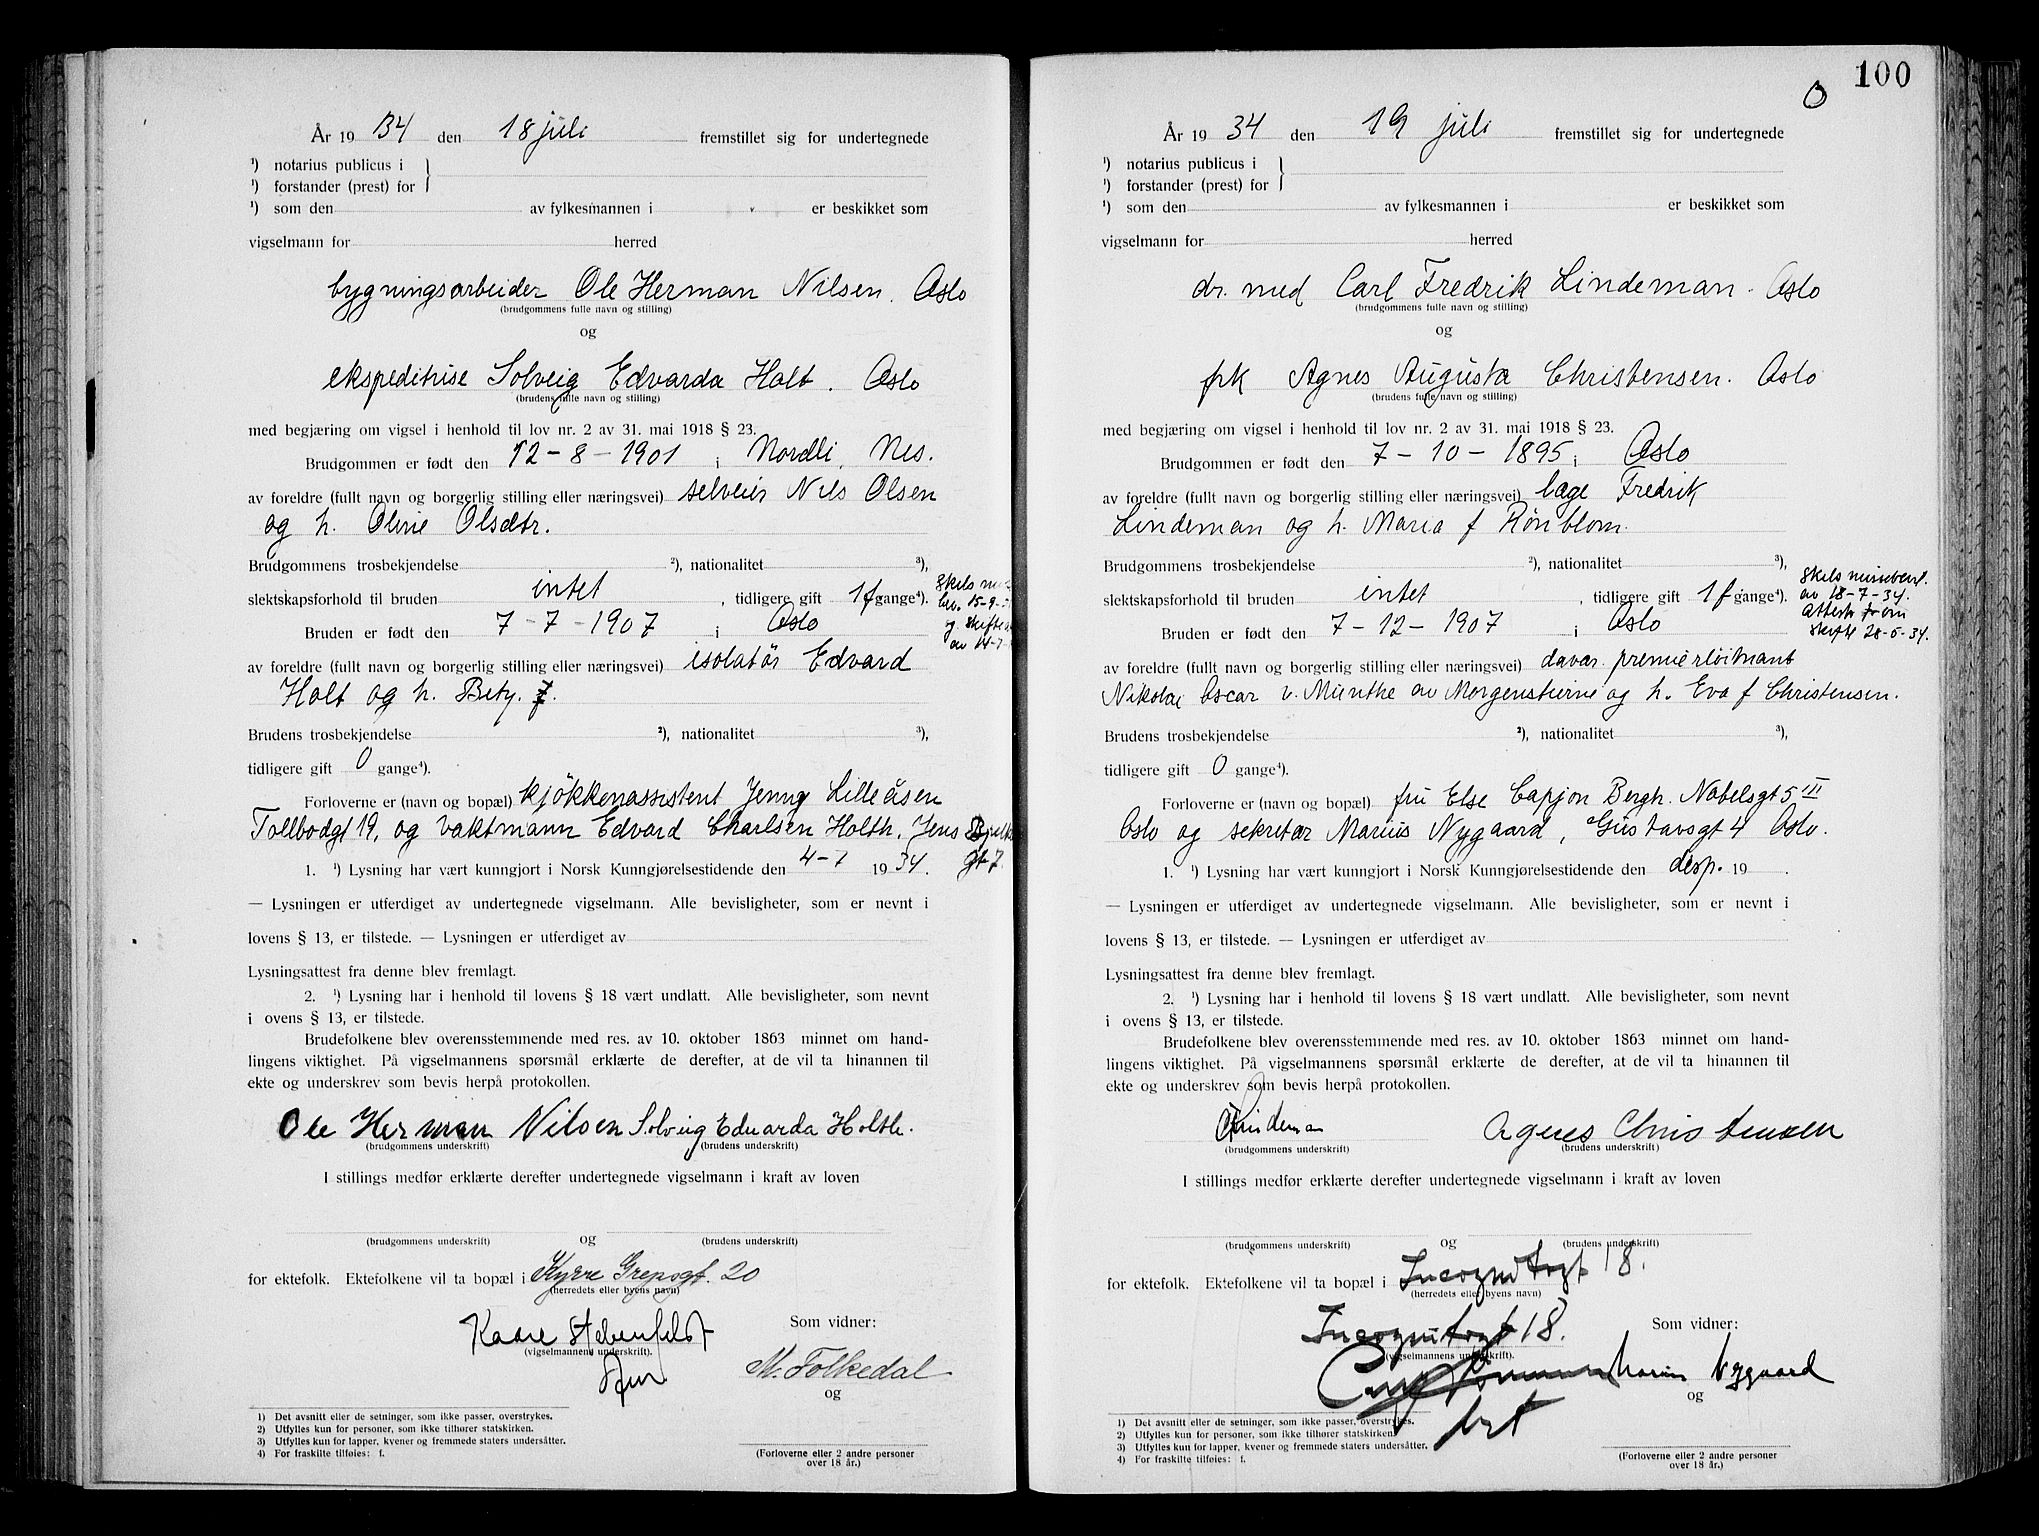 År 19 34 den 18 juli fremstillet sig for undertegnede
¹) notarius publicus i
¹) forstander (prest) for
¹) som den av fylkesmannen i er beskikket som
vigselmann for herred
bygningsarbeider Ole Herman Nilsen. Oslo
(brudgommens fulle navn og stilling)
og
ekspeditrise Solveig Edvarda Holt. Oslo
(brudens fulle navn og stilling)
med begjæring om vigsel i henhold til lov nr. 2 av 31. mai 1918 § 23.
Brudgommen er født den 12-8-1901 i Nordli, Nes.
av foreldre (fullt navn og borgerlig stilling eller næringsvei) selveier Nils Olsen
og h. Oline Olsdtr.
Brudgommens trosbekjendelse ²), nationalitet ³),
slektskapsforhold til bruden intet, tidligere gift 1 f gange⁴). Skils
bev. 15-9-
og skifte
av 14-7-
Bruden er født den 7-7-1907 i Oslo
av foreldre (fullt navn og borgerlig stilling eller næringsvei) isolatør Edvard
Holt og h. Bety. f.
Brudens trosbekjendelse ²), nationalitet ³),
tidligere gift 0 gange⁴).
Forloverne er (navn og bopæl) kjøkkenassistent Jenny Lilleåsen
Tollbodgt 19, og vaktmann Edvard Charlsen Holth. Jens Bjelke
gt 7
1. ¹) Lysning har vært kunngjort i Norsk Kunngjørelsestidende den 4-7 1934.
— Lysningen er utferdiget av undertegnede vigselmann. Alle bevisligheter, som er nevnt i
lovens § 13, er tilstede. — Lysningen er utferdiget av
Lysningsattest fra denne blev fremlagt.
2. ¹) Lysning har i henhold til lovens § 18 vært undlatt. Alle bevisligheter, som nevnt
i ovens § 13, er tilstede.
Brudefolkene blev overensstemmende med res. av 10. oktober 1863 minnet om hand-
lingens viktighet. På vigselmannens spørsmål erklærte de derefter, at de vil ta hinannen til
ekte og underskrev som bevis herpå protokollen.
Ole Herman Nilsen Solveig Edvarda Holth.
(brudgommens underskrift) (brudens underskrift)
I stillings medfør erklærte derefter undertegnede vigselmann i kraft av loven
og
(brudgommens underskrift) (brudens underskrift)
for ektefolk. Ektefolkene vil ta bopæl i Kyrre Grepsgt. 20
(herredets eller byens navn)
Som vidner:
Kaare
(vigselmannens underskrift).
M. Folkedal
og
1) Det avsnitt eller de setninger, som ikke passer, overstrykes.
2) Utfylles kun for personer, som ikke tilhører statskirken.
3) Utfylles kun for lapper, kvener og fremmede staters undersåtter.
4) For fraskilte tilføies: f.
(Forloverne eller 2 andre personer
over 18 år.)
100
0
År 19 34 den 19 juli fremstillet sig for undertegnede
¹) notarius publicus i
¹) forstander (prest) for
¹) som den av fylkesmannen i er beskikket som
vigselmann for herred
dr. med Carl Fredrik Lindeman. Oslo
(brudgommens fulle navn og stilling)
og
frk Agnes Augusta Christensen. Oslo
(brudens fulle navn og stilling)
med begjæring om vigsel i henhold til lov nr. 2 av 31. mai 1918 § 23.
Brudgommen er født den 7-10-1895 i Oslo
av foreldre (fullt navn og borgerlig stilling eller næringsvei) læge Fredrik
Lindeman og h. Maria f Rönblom.
Brudgommens trosbekjendelse ²), nationalitet ³),
slektskapsforhold til bruden intet, tidligere gift 1 f gange⁴). Skilsmissebevl.
av 18-7-34.
Attest om
skifte 28-5-34.
Bruden er født den 7-12-1907 i Oslo
av foreldre (fullt navn og borgerlig stilling eller næringsvei) davær. premierløitnant
Nikolai Oscar v. Munthe av Morgenstierne og h. Eva f Christensen.
Brudens trosbekjendelse ²), nationalitet ³),
tidligere gift 0 gange⁴).
Forloverne er (navn og bopæl) fru Else Capjon Bergh. Nobelsgt 5 III
Oslo og sekretær Marius Nygaard, Gustavsgt 4 Oslo.
1. ¹) Lysning har vært kunngjort i Norsk Kunngjørelsestidende den disp. 19 .
— Lysningen er utferdiget av undertegnede vigselmann. Alle bevisligheter, som er nevnt i
lovens § 13, er tilstede. — Lysningen er utferdiget av
Lysningsattest fra denne blev fremlagt.
2. ¹) Lysning har i henhold til lovens § 18 vært undlatt. Alle bevisligheter, som nevnt
i ovens § 13, er tilstede.
Brudefolkene blev overensstemmende med res. av 10. oktober 1863 minnet om hand-
lingens viktighet. På vigselmannens spørsmål erklærte de derefter, at de vil ta hinannen til
ekte og underskrev som bevis herpå protokollen.
Lindeman Agnes Christensen
(brudgommens underskrift) (brudens underskrift)
I stillings medfør erklærte derefter undertegnede vigselmann i kraft av loven
og
(brudgommens underskrift) (brudens underskrift)
for ektefolk. Ektefolkene vil ta bopæl i Incognitogt 18.
(herredets eller byens navn)
Incognitogt 18.
Som vidner:
(vigselmannens underskrift).
Marius Nygaard
og
1) Det avsnitt eller de setninger, som ikke passer, overstrykes.
2) Utfylles kun for personer, som ikke tilhører statskirken.
3) Utfylles kun for lapper, kvener og fremmede staters undersåtter.
4) For fraskilte tilføies: f.
(Forloverne eller 2 andre personer
over 18 år.)